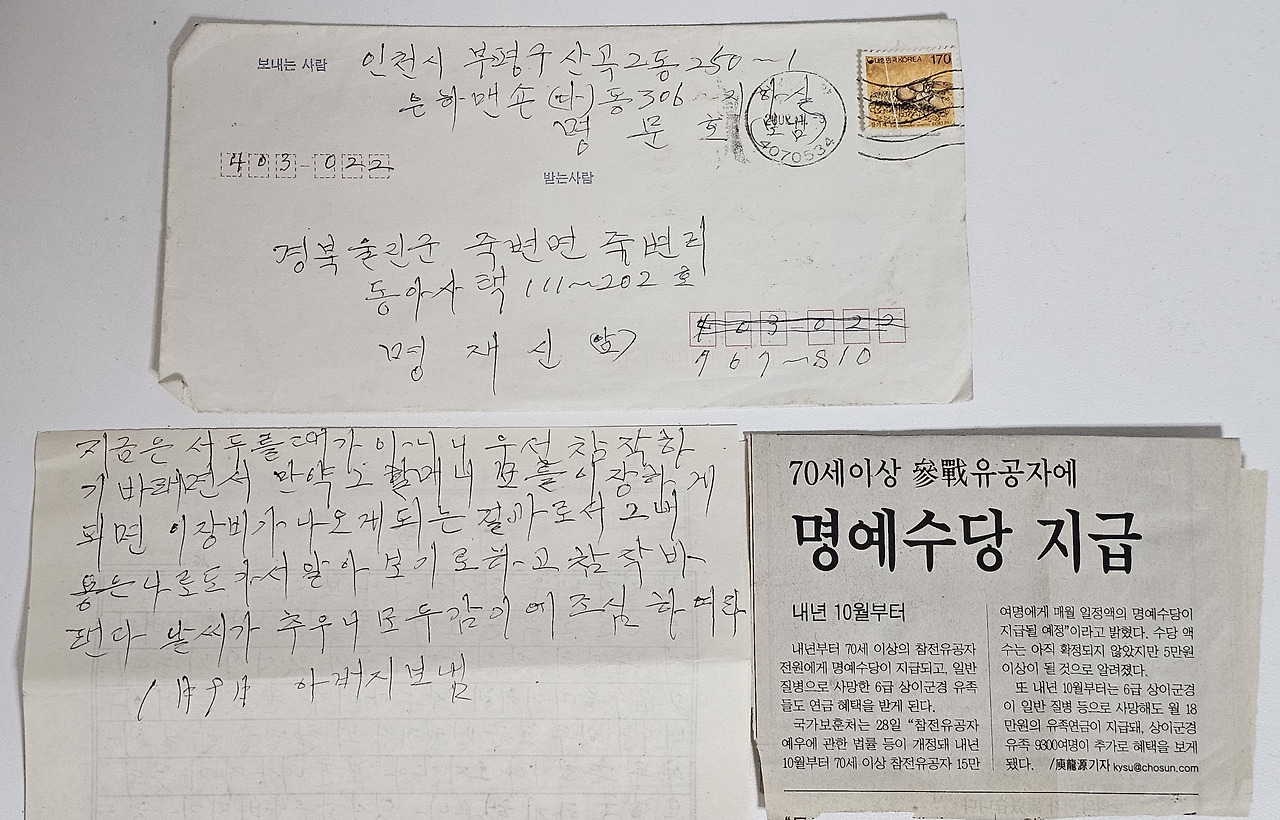 보내는 사람
인천시 부평구 산곡2동 250~1
은하맨손 (다)동 306 지하실
명 문 호 보냄
대한민국 KOREA 170
4070534
403-022
받는사람
경북울진군 죽변면 죽변리
동아사택 111~202호
명 재 신 앞)
403 022
767~810
지금은 서두를때가 아니니 우선 참작하
기 바라면서 만약 그 할머니 묘를 이장하게
되면 이장비가 나오게 되는 걸까로서 그내
용은 나로도 가서 알아 보기로하고 참작바
랜다 날씨가 추우니 모두 감기에 조심 하여라
1月9日 아버지보냄
70세이상 參戰유공자에
명예수당 지급
내년 10월부터
내년부터 70세 이상의 참전유공자
전원에게 명예수당이 지급되고, 일반
질병으로 사망한 6급 상이군경 유족
들도 연금 혜택을 받게 된다.
국가보훈처는 28일 “참전유공자
예우에 관한 법률 등이 개정돼 내년
10월부터 70세 이상 참전유공자 15만
여명에게 매월 일정액의 명예수당이
지급될 예정”이라고 밝혔다. 수당 액
수는 아직 확정되지 않았지만 5만원
이상이 될 것으로 알려졌다.
또 내년 10월부터는 6급 상이군경
이 일반 질병 등으로 사망해도 월 18
만원의 유족연금이 지급돼, 상이군경
유족 9300여명이 추가로 혜택을 보게
됐다. /庾龍源기자 kysu@chosun.com